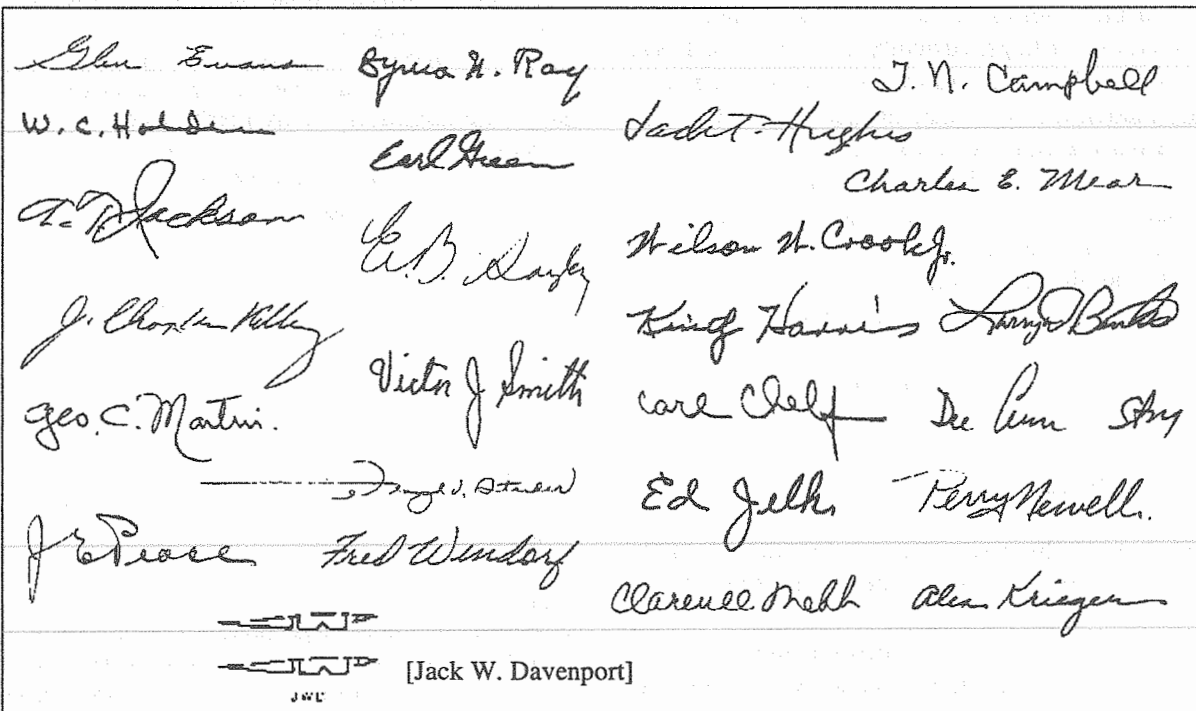 Glen Evans
W. C. Holden
A. T. Jackson
J. Charles Kelley
Geo. C. Martin.
J E Pearce
Cyrus N. Ray
Earl Green
E. B. Sayles
Victor J Smith
Fred Wendorf
[Jack W. Davenport]
T. N. Campbell
Jack T. Hughes
Charles E. Mear
Wilson W. Crook Jr.
King Harris
Larry Banks
Carl Chelf
Dee Ann Story
Ed Jelks
Perry Newell.
Clarence Webb
Alex Krieger